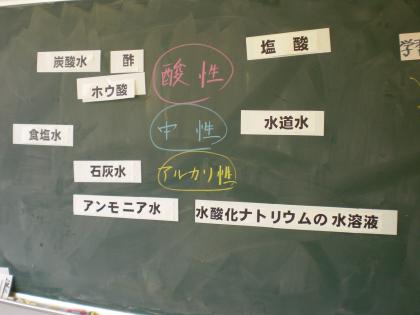 炭酸水 酢 酸性 塩酸
ホウ酸
食塩水 中性 水道水
石灰水 アルカリ性
アンモニア水 水酸化ナトリウムの水溶液